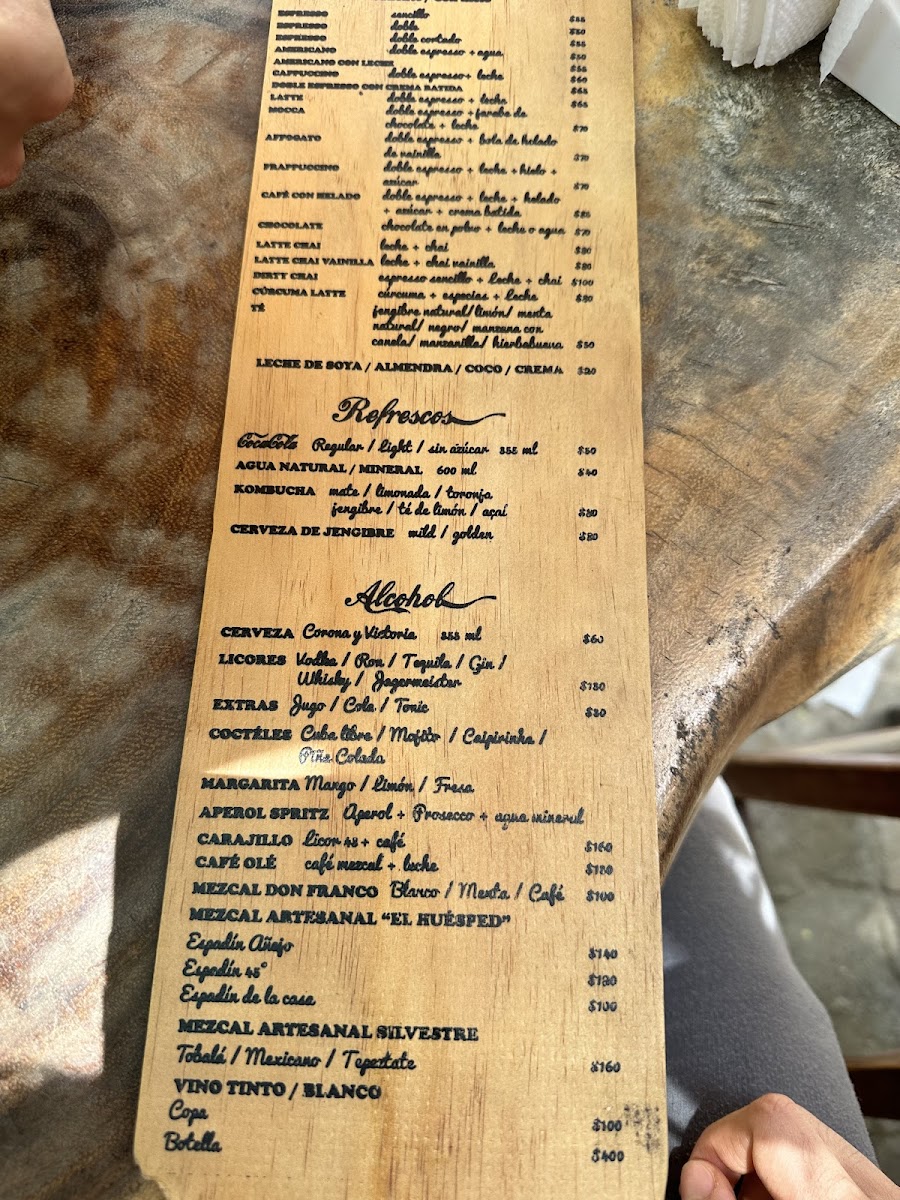 ESPRESSO sencillo
ESPRESSO doble
ESPRESSO doble cortado
AMERICANO doble espresso + agua
AMERICANO CON LECHE
CAPPUCCINO doble espresso + leche
DOBLE ESPRESSO CON CREMA BATIDA
LATTE doble espresso + leche
MOCCA doble espresso + jarabe de
chocolate + leche $70
AFFOGATO doble espresso + bola de helado
de vainilla $70
FRAPPUCCINO doble espresso + leche + hielo +
azúcar $70
CAFÉ CON HELADO doble espresso + leche + helado
+ azúcar + crema batida $85
CHOCOLATE chocolate en polvo + leche o agua $70
LATTE CHAI leche + chai $80
LATTE CHAI VAINILLA leche + chai vainilla $80
DIRTY CHAI espresso sencillo + leche + chai $100
CÚRCUMA LATTE cúrcuma + especias + leche $80
TÉ jengibre natural/limón/ menta
natural/ negro/ manzana con
canela/ manzanilla/ hierbabuena $50
LECHE DE SOYA / ALMENDRA / COCO / CREMA $20
Refrescos
CocaCola Regular / light / sin azúcar 355 ml $50
AGUA NATURAL / MINERAL 600 ml $40
KOMBUCHA mate / limonada / toronja
jengibre / té de limón / açaí $80
CERVEZA DE JENGIBRE mild / golden $80
Alcohol
CERVEZA Corona y Victoria 355 ml $60
LICORES Vodka / Ron / Tequila / Gin /
Whisky / Jagermeister
EXTRAS Jugo / Cola / Tonic
COCTÉLES Cuba libre / Mojito / Caipirinha /
Piña Colada
MARGARITA Mango / Limón / Fresa
APEROL SPRITZ Aperol + Prosecco + agua mineral
CARAJILLO Licor 43 + café $160
CAFÉ OLÉ café mezcal + leche
MEZCAL DON FRANCO Blanco / Menta / Café $100
MEZCAL ARTESANAL "EL HUÉSPED"
Espadín Añejo $140
Espadín 45°
Espadín de la casa $100
MEZCAL ARTESANAL SILVESTRE
Tobalá / Mexicano / Tepeztate $160
VINO TINTO / BLANCO
Copa $100
Botella $400